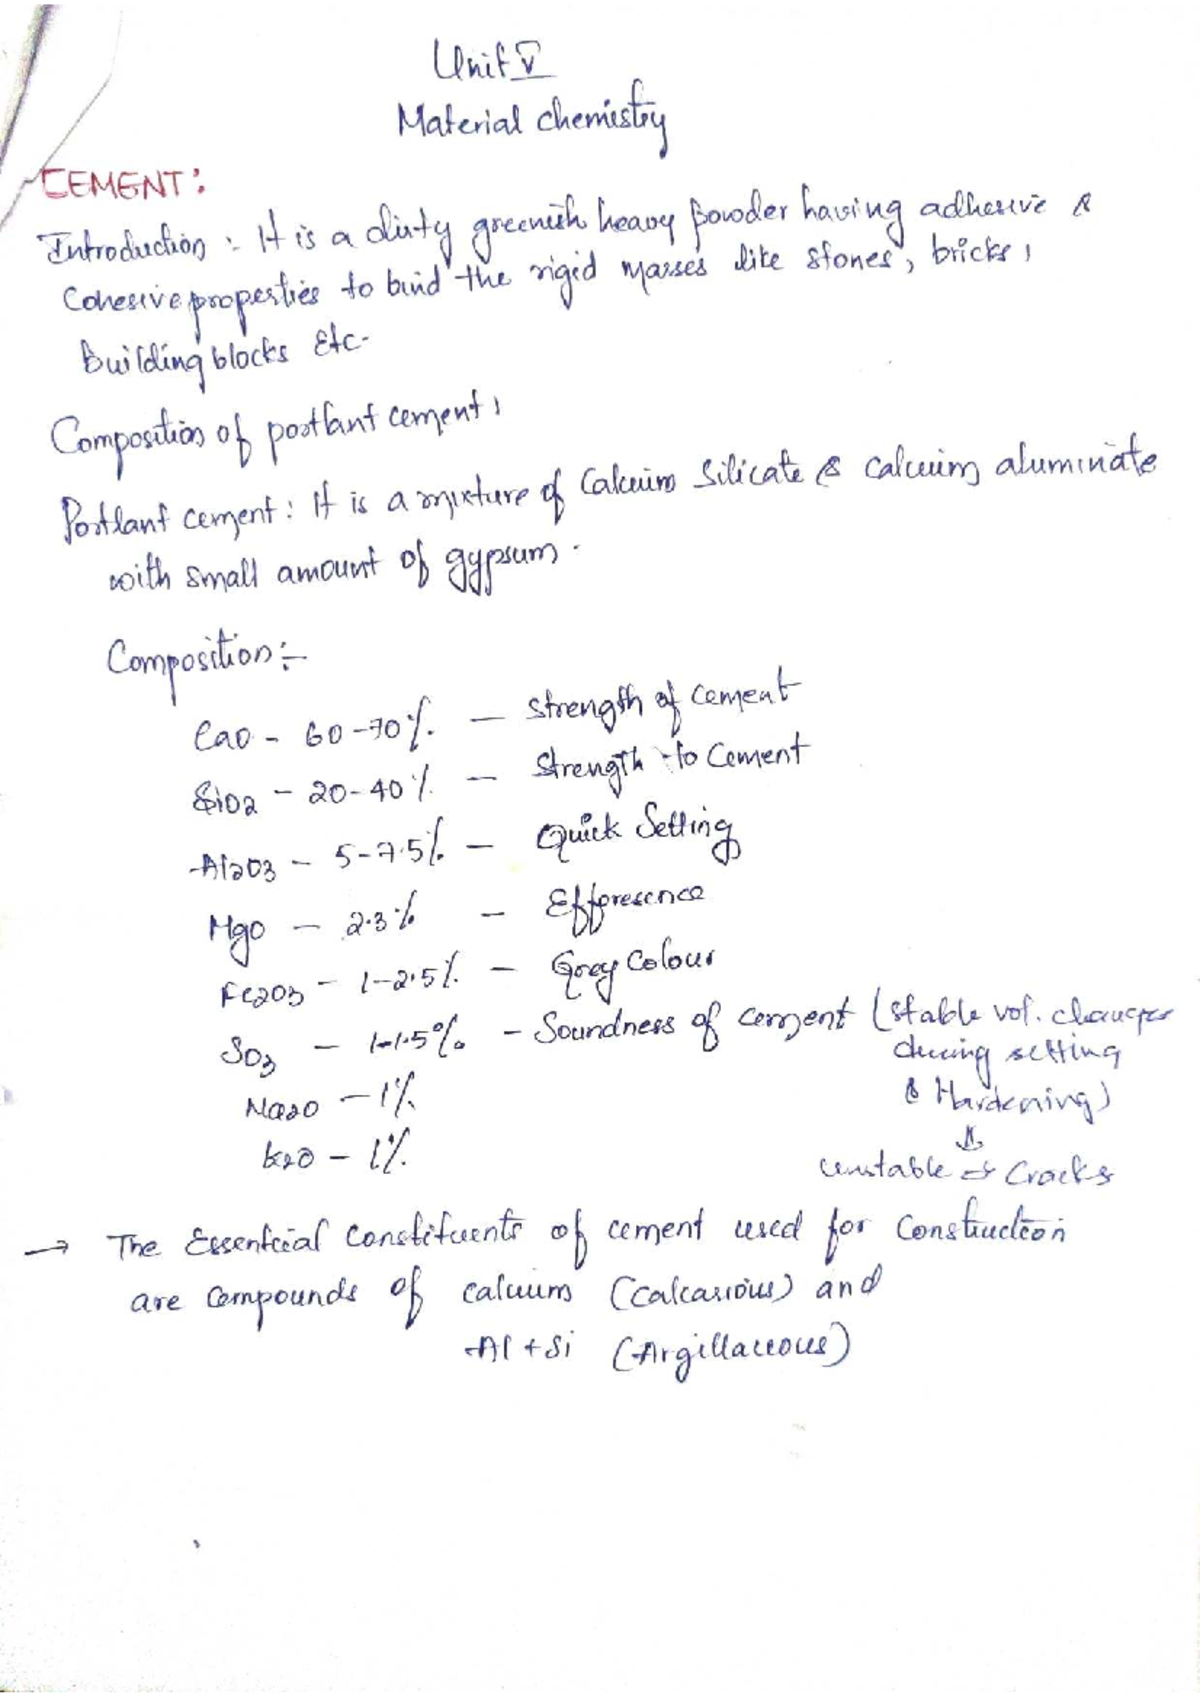 Unit V
Material chemistry
CEMENT:
Introduction :- It is a dirty greenish heavy powder having adhesive &
Cohesive properties to bind the rigid masses like stones, bricks,
Building blocks Etc.
Composition of portlant cement,
Portlant cement: It is a mixture of Calcium Silicate & calcium aluminate
with small amount of gypsum.
Composition:-
CaO - 60-70% - strength of cement
SiO2 - 20-40% - Strength to Cement
Al2O3 - 5-7.5% - Quick Setting
MgO - 2.3% - Effloresence
Fe2O3 - 1-2.5% - Grey Colour
SO3 - 1-1.5% - Soundness of cement (stable vol. changes
during setting
& Hardening)
↓
unstable → Cracks
Na2O - 1%
K2O - 1%
→ The Essential constituents of cement used for Construction
are Compounds of calcium (calcarious) and
Al + Si (Argillaceous)